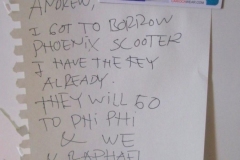 ANDREW,
I GOT TO BORROW
PHOENIX SCOOTER
I HAVE THE KEY
ALREADY.
THEY WILL GO
TO PHI PHI
& WE
RAPHAEL